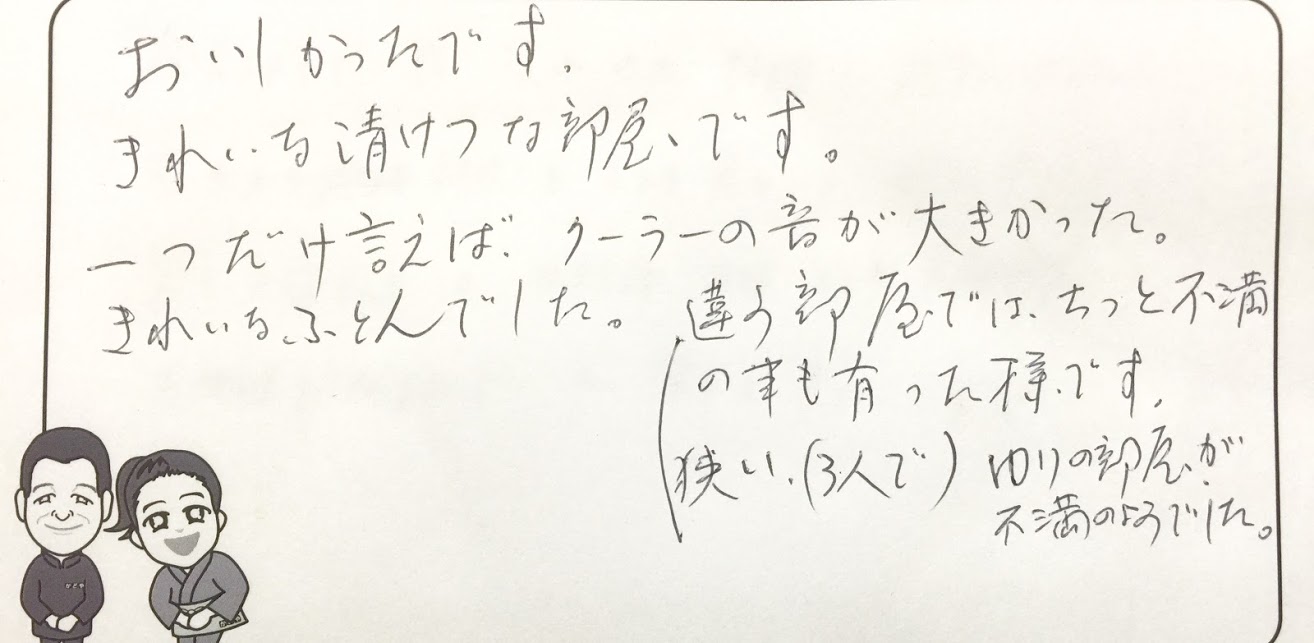 おいしかったです。
きれいな清けつな部屋、です。
一つだけ言えば、クーラーの音が大きかった。
きれいなふとんでした。
違う部屋では、ちっと不満
の事も有った様です。
狭い、(3人で) ゆりの部屋、が
不満のようでした。